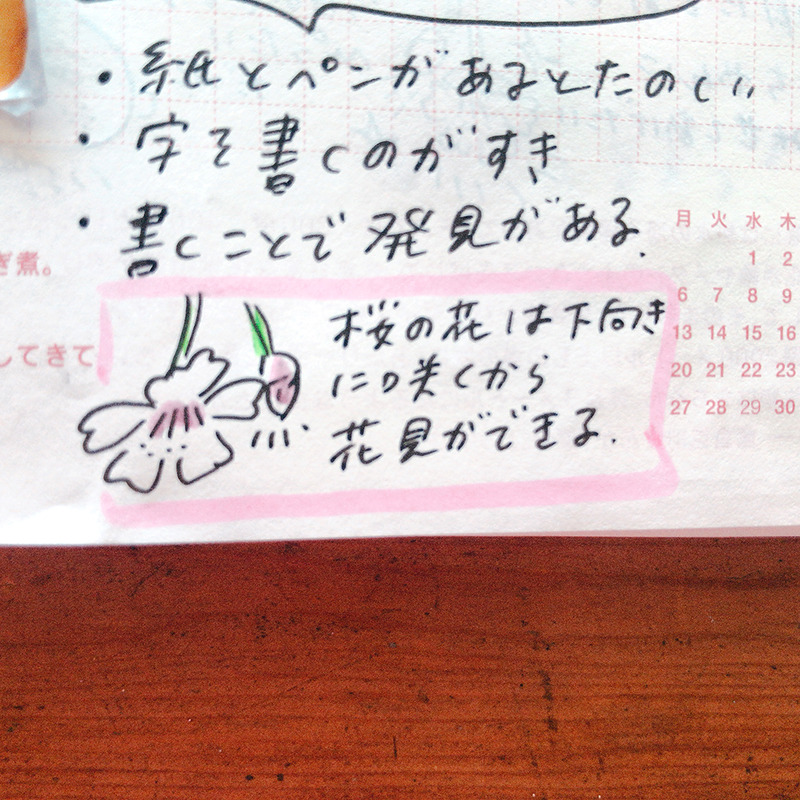 ・紙とペンがあるとたのしい
・字を書くのがすき
・書くことで発見がある.
ぎ煮。
してきて
桜の花は下向き
に咲くから
花見ができる.
月 火 水 木
1 2
6 7 8 9
13 14 15 16
20 21 22 23
27 28 29 30